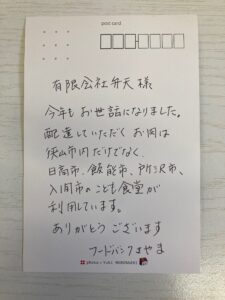 post card
有限会社弁天 様
今年もお世話になりました。
配達していただくお肉は
狭山市内だけでなく、
日高市、飯能市、所沢市、
入間市のこども食堂が
利用しています。
ありがとうございます
フードバンクさやま